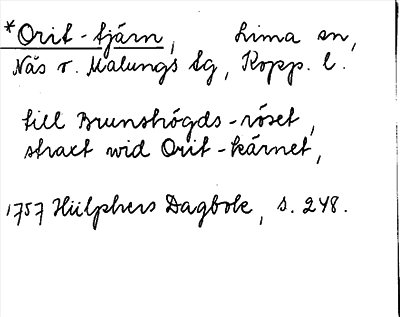 *Orit-tjärn, Lima sn,
Näs o. Malungs tg, Kopp. l.
till Brunshögds-röset,
straxt wid Orit-kärnet,
1757 Hülphers Dagbok, s. 248.